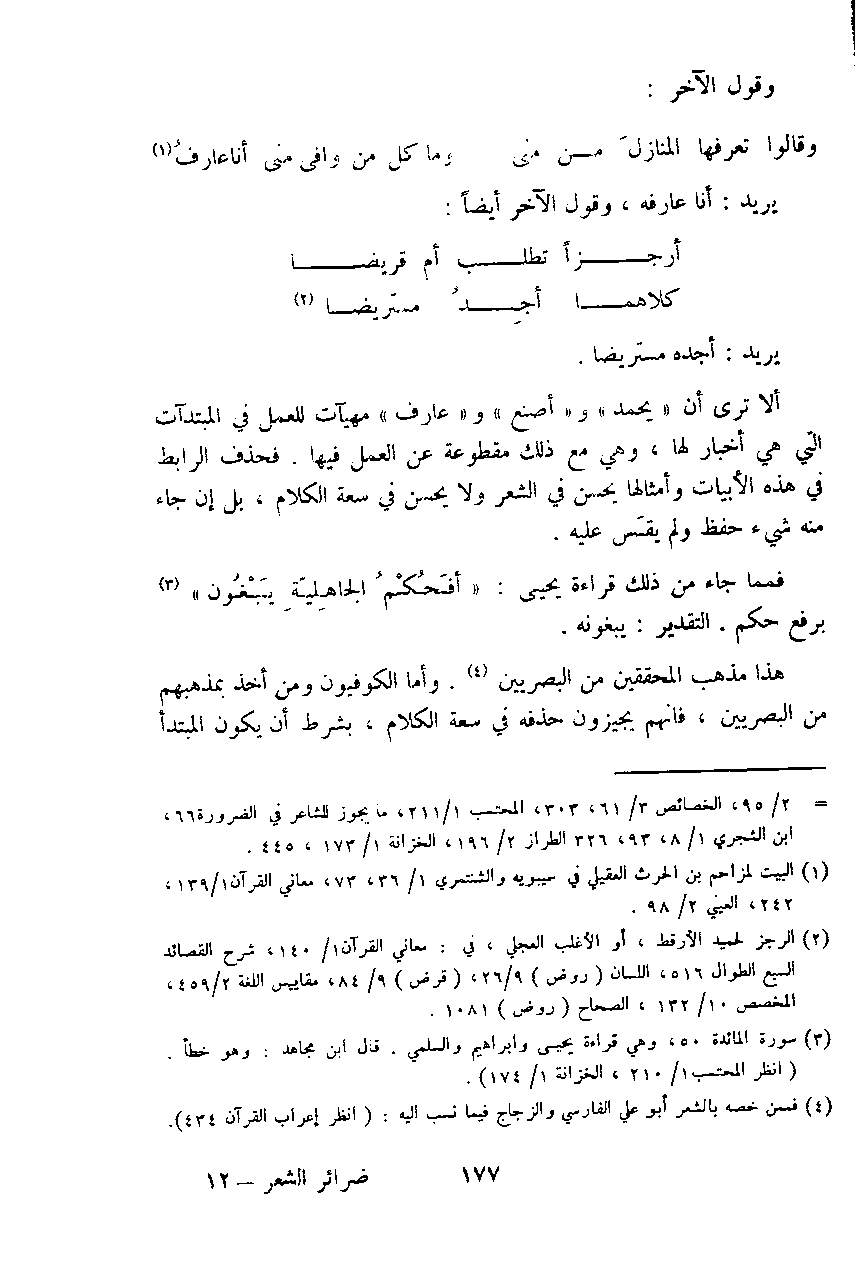 وقول الآخر :
وقالوا تعرفها المنازلَ مـن منى وما كل من وافى منى أنا عارفُ(١)
يريد : أنا عارفه ، وقول الآخر أيضاً :
أرجـزاً تطلـب أم قريضـا
كلاهمـا أجِـدُ مستريضـا (٢)
يريد : أجده مستريضا .
ألا ترى أن « يحمد » و « أصنع » و « عارف » مهيآت للعمل في المبتدآت
التي هي أخبار لها ، وهي مع ذلك مقطوعة عن العمل فيها . فحذف الرابط
في هذه الأبيات وأمثالها يحسن في الشعر ولا يحسن في سعة الكلام ، بل إن جاء
منه شيء حفظ ولم يقَس عليه .
فمما جاء من ذلك قراءة يحيى : « أفَحُكْمُ الجاهِليّةِ يَبْغُون » (٣)
برفع حكم . التقدير : يبغونه .
هذا مذهب المحققين من البصريين (٤) . وأما الكوفيون ومن أخذ بمذهبهم
من البصريين ، فانهم يجيزون حذفه في سعة الكلام ، بشرط أن يكون المبتدأ
= ٢/ ٩٥، الخصائص ٣/ ٦١، ٣٠٣، المحتسب ١/ ٢١١، ما يجوز للشاعر في الضرورة٦٦،
ابن الشجري ١/ ٨، ٩٣، ٣٢٦ الطراز ٢/ ١٩٦، الخزانة ١/ ١٧٣ ، ٤٤٥ .
(١) البيت لمزاحم بن الحرث العقيلي في سيبويه والشنتمري ١/ ٣٦، ٧٣، معاني القرآن١/ ١٣٩،
٢٤٢، العيني ٢/ ٩٨ .
(٢) الرجز لحميد الأرقط ، أو الأغلب العجلي ، في : معاني القرآن١/ ١٤٠، شرح القصائد
السبع الطوال ٥١٦، اللسان ( روض ) ٩/ ٢٦، ( قرض ) ٩/ ٨٤، مقاييس اللغة ٢/ ٤٥٩،
المخصص ١٠/ ١٣٢ ، الصحاح ( روض ) ١٠٨١ .
(٣) سورة المائدة ٥٠، وهي قراءة يحيـى وابراهيم والسلمي . قال ابن مجاهد : وهو خطأ .
( انظر المحتسب١/ ٢١٠ ، الخزانة ١/ ١٧٤) .
(٤) فمـن خصه بالشعر أبو علي الفارسي والزجاج فيما نسب اليه : ( انظر إعراب القرآن ٤٣٤).
١٧٧ ضرائر الشعر – ١٢